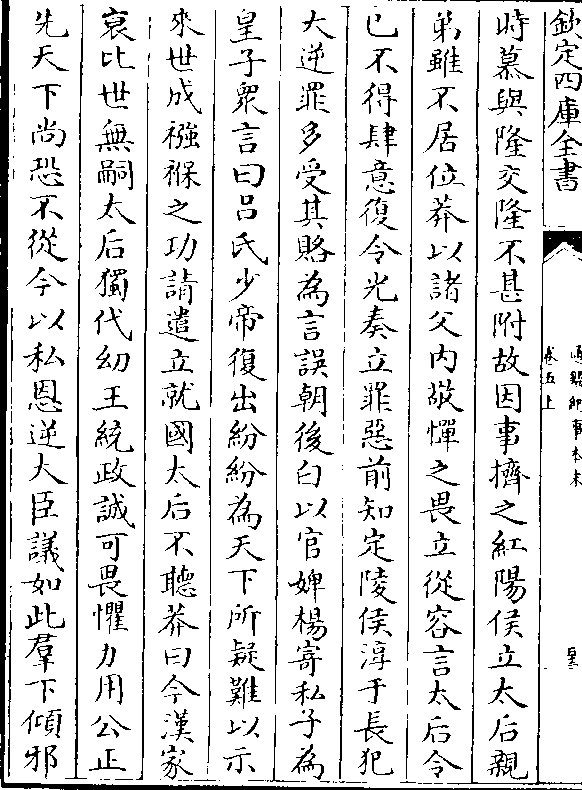 欽定四庫全書
通鑑紀事本末
卷五上
時慕與隆交隆不甚附故因事擠之紅陽侯立太后親
弟雖不居位莽以諸父内敬憚之畏立從容言太后令
已不得肆意復令光奏立罪惡前知定陵侯淳于長犯
大逆罪多受其賂為言誤朝後白以官婢楊寄私子為
皇子衆言曰吕氏少帝復出紛紛為天下所疑難以示
來世成襁褓之功請遣立就國太后不聽莽曰今漢家
衰比世無嗣太后獨代幼主統政誠可畏懼力用公正
先天下尚恐不從今以私恩逆大臣議如此羣下傾邪